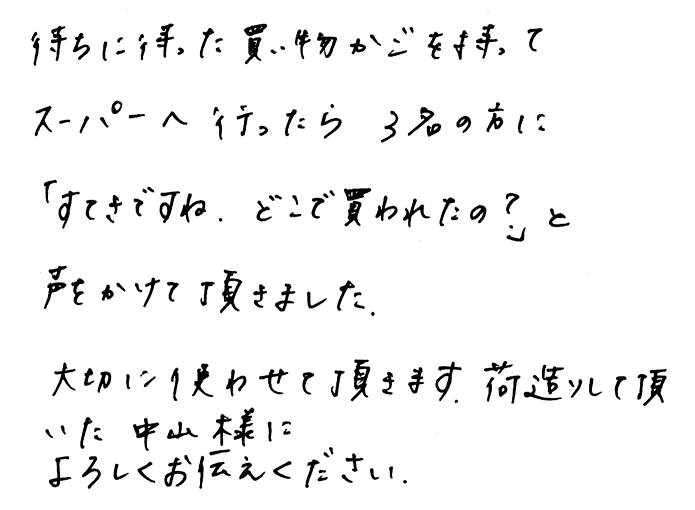 待ちに待った買い物かごを持って
スーパーへ行ったら 3名の方に
「すてきですね. どこで買われたの?」と
声をかけて頂きました.
大切に使わせて頂きます. 荷造りして頂
いた 中山様に
よろしくお伝えください.